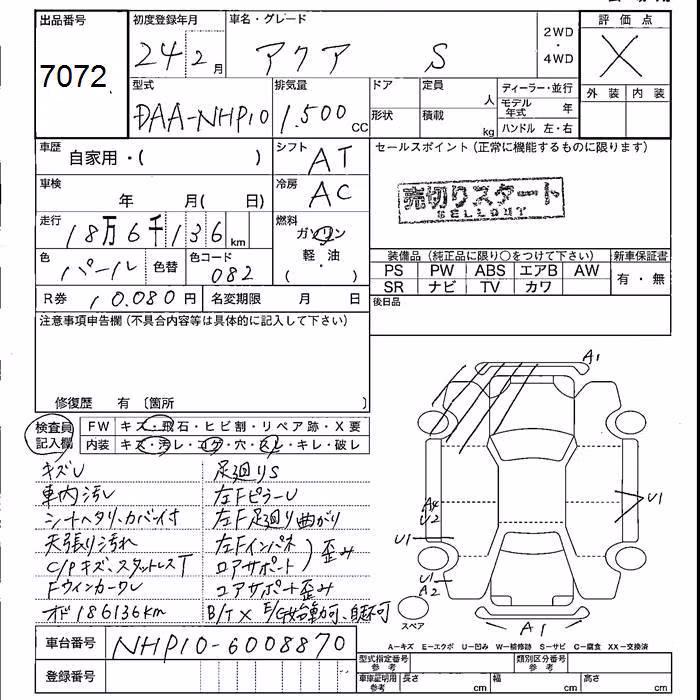 出品番号
7072
初度登録年月
24 2月
車名・グレード
アクア S
2WD
・
4WD
評価点
X
外装 内装
型式
DAA-NHP10
排気量
1.500 CC
ドア
形状
定員 人
積載 kg
ディーラー・並行
モデル年式 年
ハンドル 左・右
車歴
自家用・( )
シフト
AT
セールスポイント(正常に機能するものに限ります)
売切りスタート
SELLOUT
車検
年 月( 日)
冷房
AC
走行
18万6千136km
燃料
ガソリン
軽・油
( ・ )
色
パール
色替
色コード
082
装備品(純正品に限り○をつけて下さい)
新車保証書
PS PW ABS エアB AW
SR ナビ TV カワ
有・無
R券 10.080円
名変期限 月 日
後日品
注意事項申告欄(不具合内容等は具体的に記入して下さい)
修復歴 有 〔箇所 〕
検査員
記入欄
FW キズ・飛石・ヒビ割・リペア跡・X要
内装 キズ・汚レ・コゲ・穴・スレ・キレ・破レ
キズU
車内汚レ
シートヘタリ、カバー付
天張り汚れ
C/Pキズ、スタットレスT
Fウインカーワレ
オド186136km
足廻りS
左FピラーU
左F足廻り曲がり
左Fインパネ
ロアサポート
歪み
コアサポート歪み
B/T X E/G始動可、自走不可
A1
A4
U2
U1
U1
U1
A2
A1
スペア
A=キズ E=エクボ U=凹み W=補修跡 S=サビ C=腐食 XX=交換済
車台番号
NHP10-6008870
登録番号
型式指定番号
参考
類別区分番号
参考
車庫証明用
参考
長さ cm
幅 cm
高さ cm